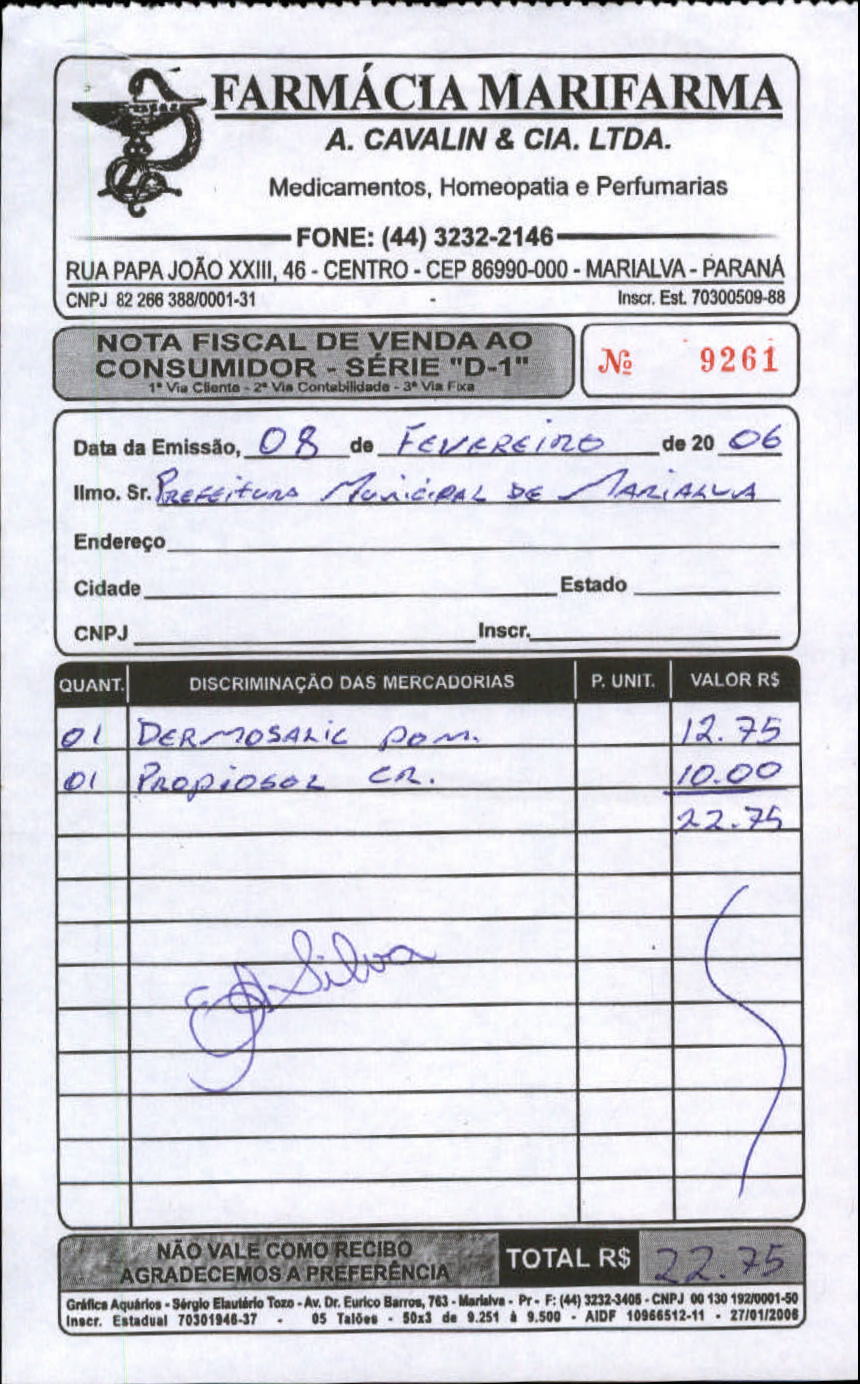 FARMÁCIA MARIFARMA
A. CAVALIN & CIA. LTDA.
Medicamentos, Homeopatia e Perfumarias
FONE: (44) 3232-2146
RUA PAPA JOÃO XXIII, 46 - CENTRO - CEP 86990-000 - MARIALVA - PARANÁ
CNPJ 82 266 388/0001-31 Inscr. Est. 70300509-88
NOTA FISCAL DE VENDA AO
CONSUMIDOR - SÉRIE "D-1"
1ª Via Cliente - 2ª Via Contabilidade - 3ª Via Fixa
Nº 9261
Data da Emissão, 08 de FEVEREIRO de 20 06
Ilmo. Sr. PREFEITURA MUNICIPAL DE MARIALVA
Endereço
Cidade Estado
CNPJ Inscr.
QUANT. DISCRIMINAÇÃO DAS MERCADORIAS P. UNIT. VALOR R$
01 DERMOSALIC POM. 12.75
01 PROPIOSOL CR. 10.00
22.75
Silva
NÃO VALE COMO RECIBO
AGRADECEMOS A PREFERÊNCIA
TOTAL R$ 22.75
Gráfica Aquários - Sérgio Elautério Tozo - Av. Dr. Eurico Barros, 763 - Marialva - Pr - F: (44) 3232-3406 - CNPJ 00 130 192/0001-50
Inscr. Estadual 70301946-37 - 05 Talões - 50x3 de 9.251 à 9.500 - AIDF 10966512-11 - 27/01/2006